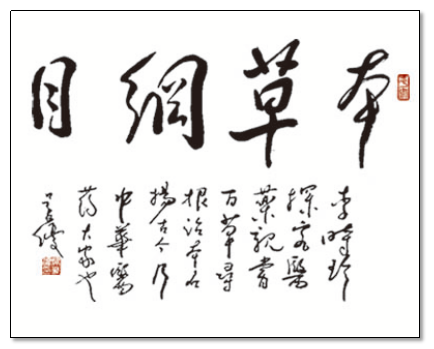 本草綱目
李時珍
探究醫
藥親嘗
百草尋
根治本名
揚古今乃
中華醫
药大家也